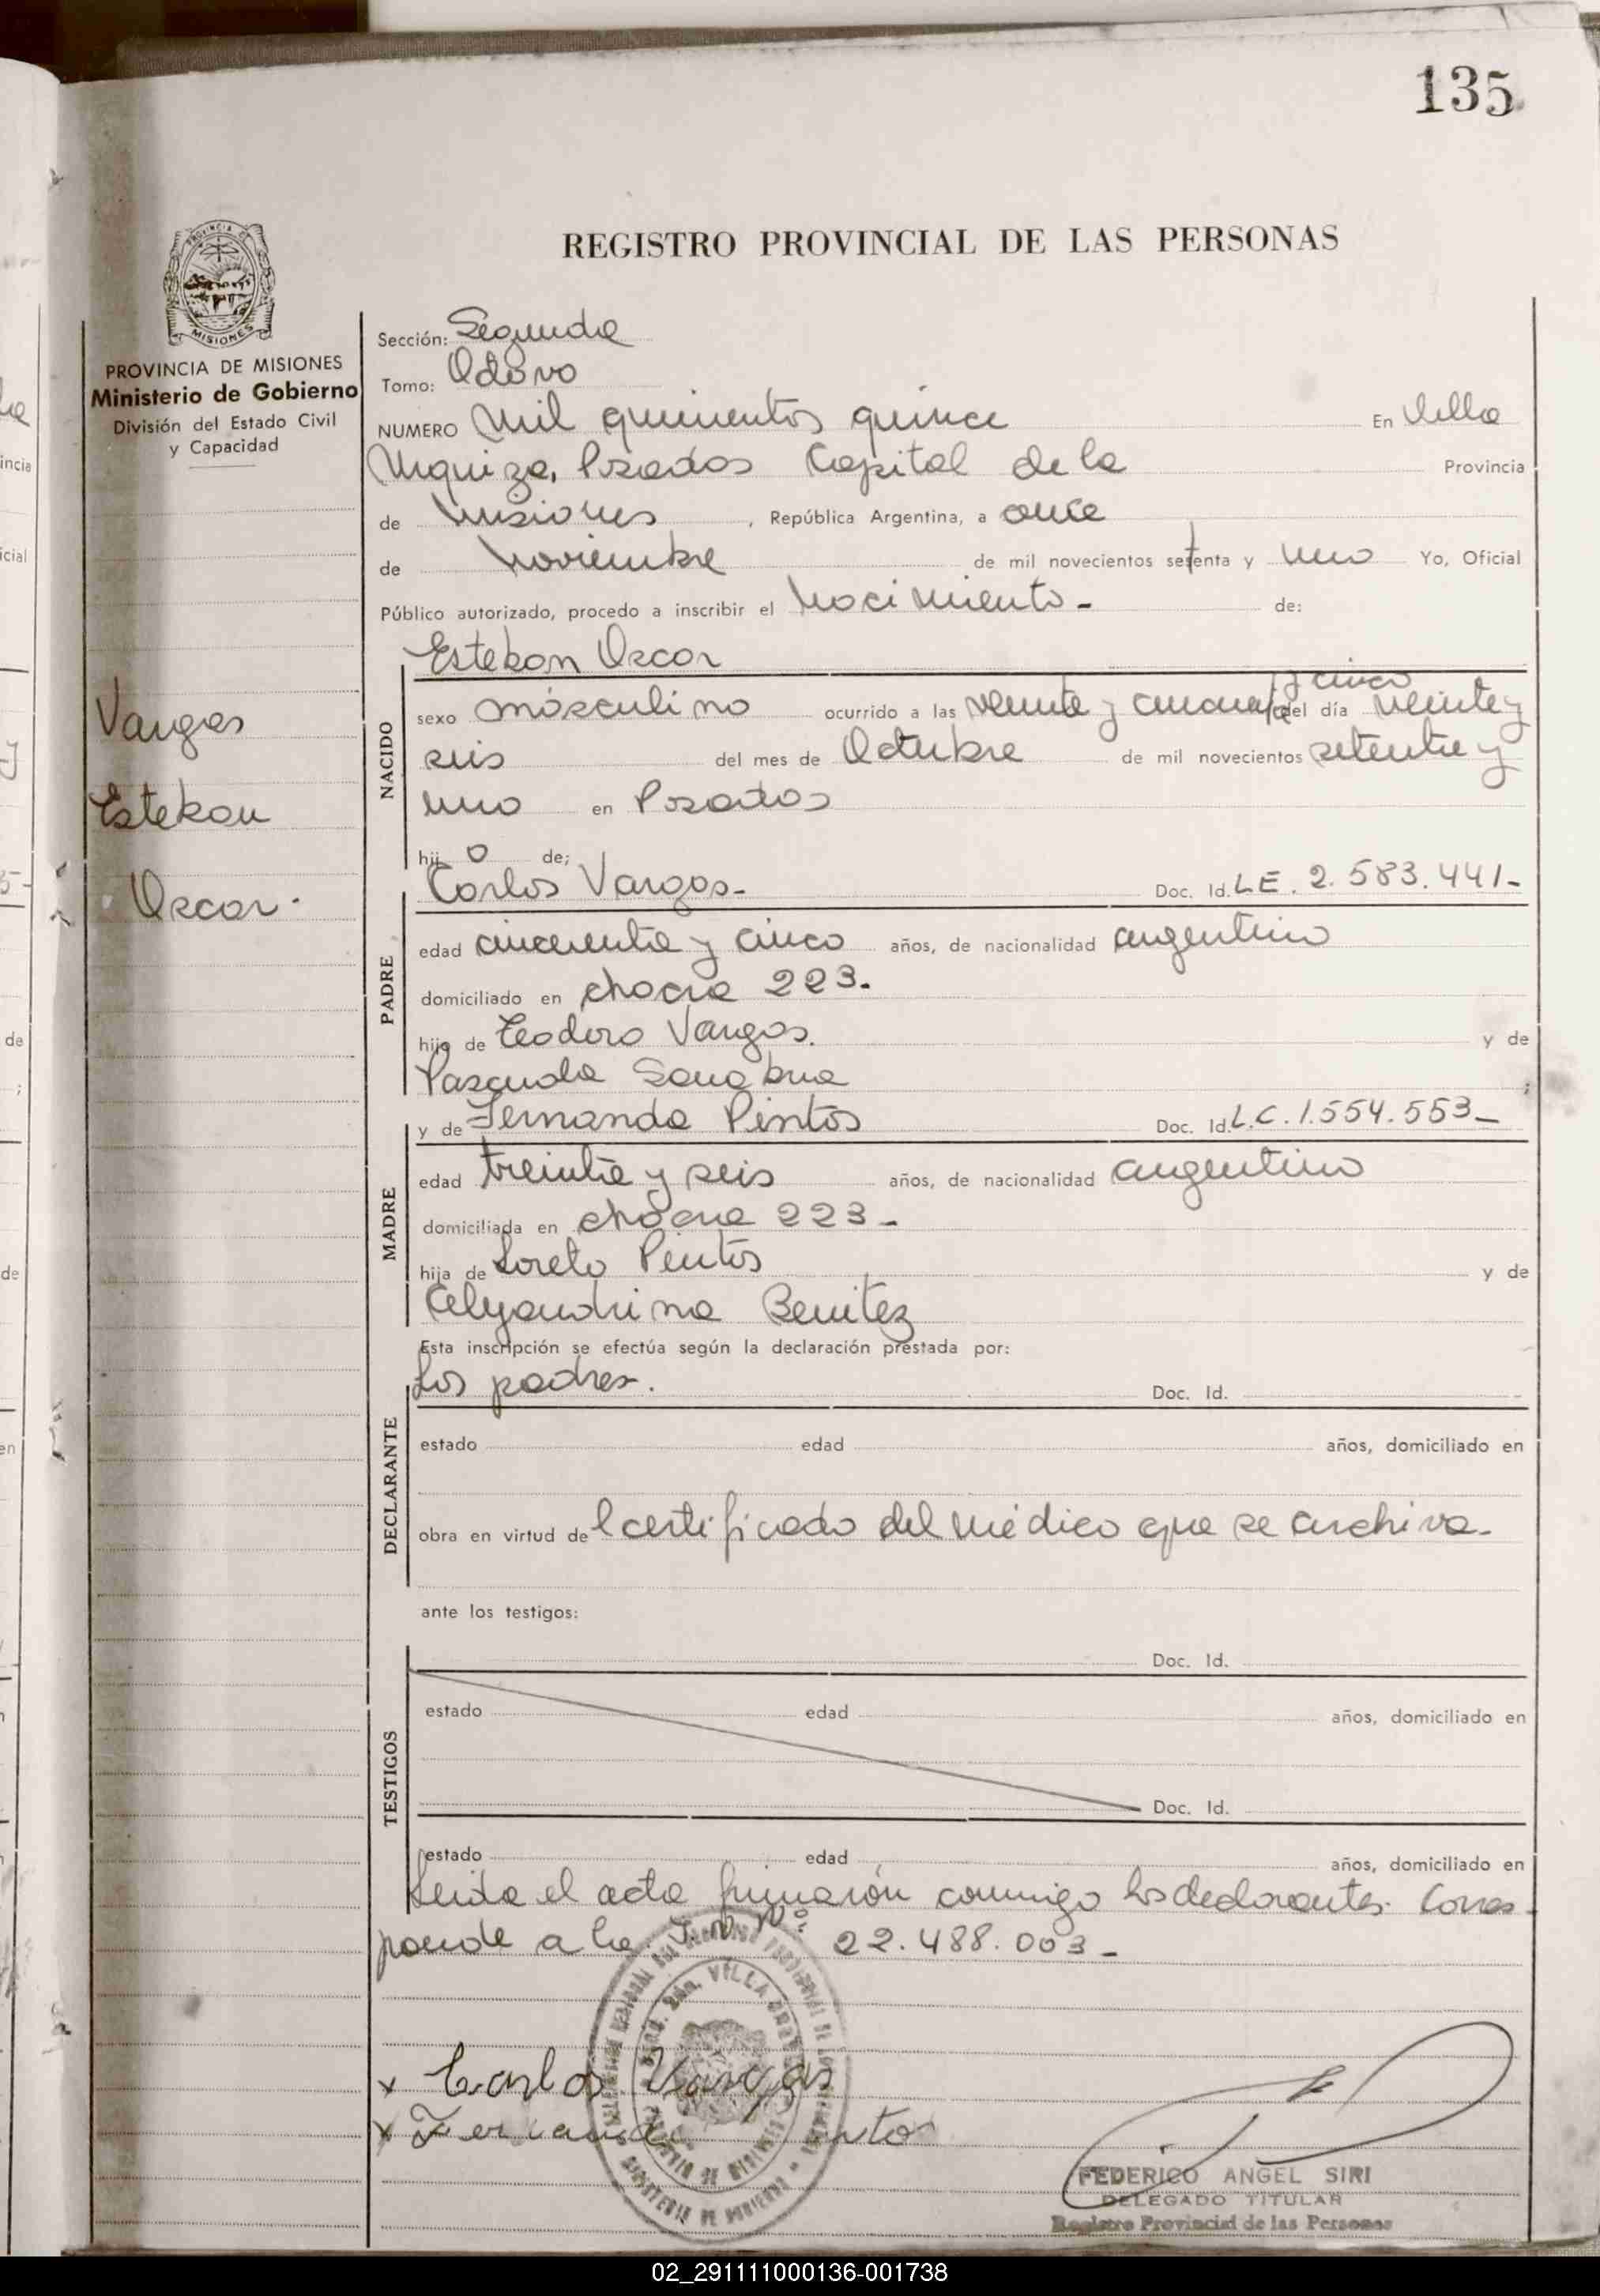 135
REGISTRO PROVINCIAL DE LAS PERSONAS
PROVINCIA DE MISIONES
Ministerio de Gobierno
División del Estado Civil
y Capacidad
Vargas
Esteban
Oscar.
Sección: Segunda
Tomo: Octavo
NUMERO Mil quinientos quince En Villa
Urquiza, Posadas Capital de la Provincia
de Misiones, República Argentina, a once
de Noviembre de mil novecientos setenta y uno Yo, Oficial
Público autorizado, procedo a inscribir el Nacimiento - de:
Esteban Oscar
NACIDO
y cinco
sexo másculino ocurrido a las veinte y cuarenta del día veinte y
seis del mes de Octubre de mil novecientos setenta y
uno en Posadas
hijo de;
Carlos Vargas- Doc. Id. LE. 2.583.441-
PADRE
edad cincuenta y cinco años, de nacionalidad argentino
domiciliado en chacra 223.
hijo de Teodoro Vargas. y de
Pascuala Sanabria ;
y de Fernanda Pintos Doc. Id. L.C. 1.554.553-
MADRE
edad treinta y seis años, de nacionalidad argentina
domiciliada en chacra 223-
hija de Loreto Pintos y de
Alejandrina Benitez
Esta inscripción se efectúa según la declaración prestada por:
Los padres. Doc. Id.
DECLARANTE
estado edad años, domiciliado en
obra en virtud del certificado del médico que se archiva-
ante los testigos:
Doc. Id.
TESTIGOS
estado edad años, domiciliado en
Doc. Id.
estado edad años, domiciliado en
Leida el acta firmarón conmigo los declarantes. Corres-
ponde a la I.N Nº 22.488.003-
x Carlos Vargas
x
FEDERICO ANGEL SIRI
DELEGADO TITULAR
Registro Provincial de las Personas
02_291111000136-001738